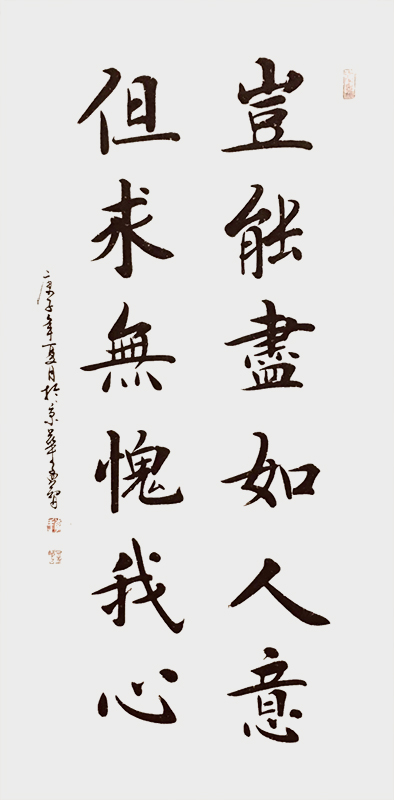 豈能盡如人意
但求無愧我心
庚子年夏月於京華